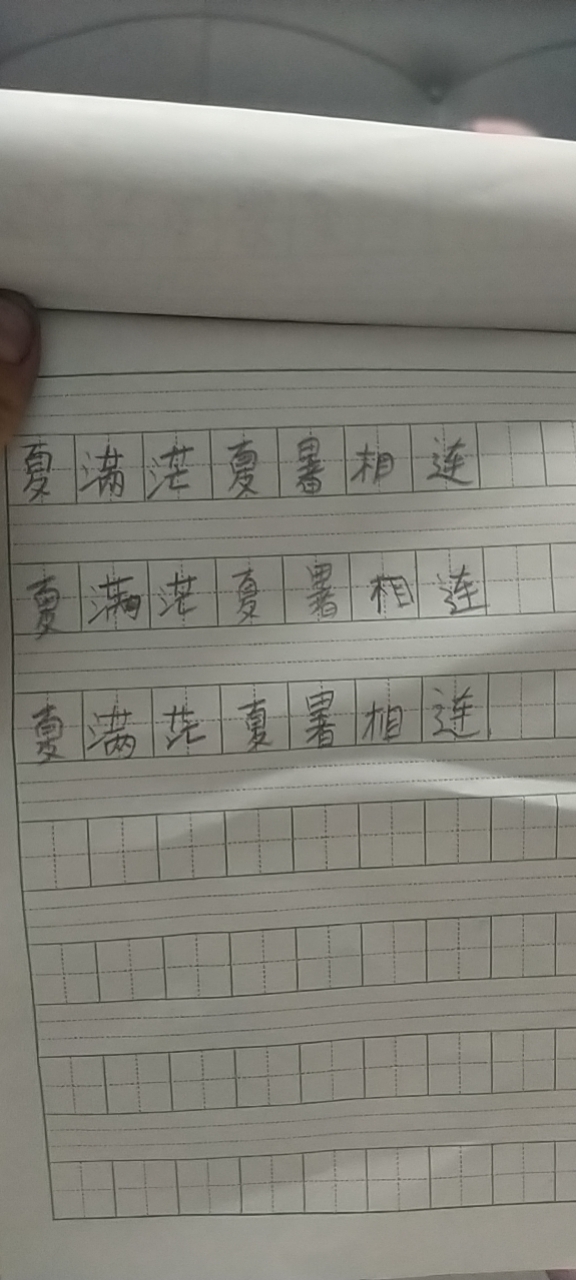 夏满茫夏暑相连
夏满茫夏暑相连
夏满芒夏暑相连